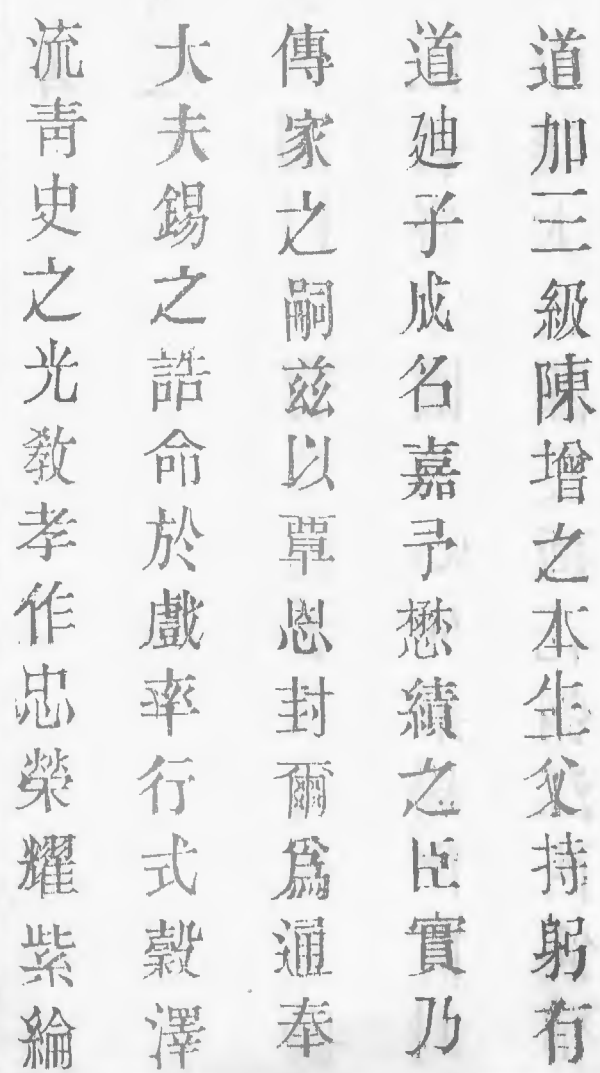 道加三級陳增之本生父持躬有
道廸子成名嘉予懋績之臣實乃
傳家之嗣兹以覃恩封爾爲通奉
大夫錫之誥命於戲率行式穀澤
流靑史之光敎孝作忠榮耀紫綸